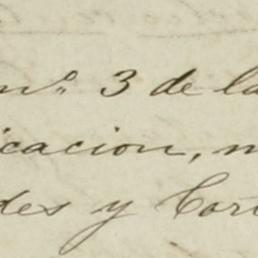 nº 3 de la
icacion, n
des y Cort